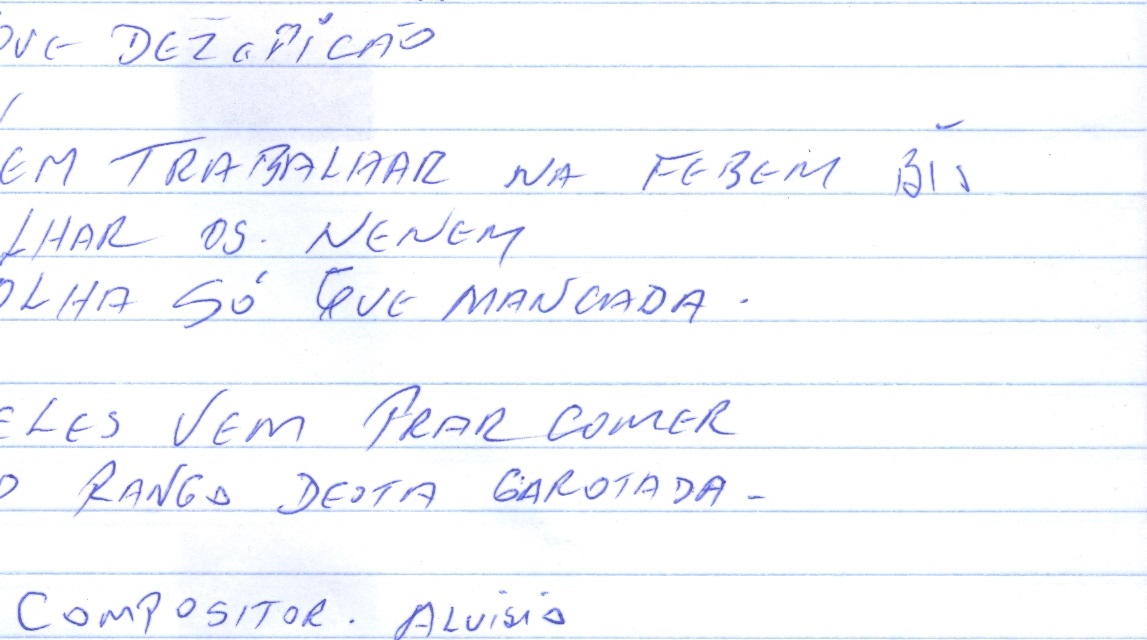 QUE DEZEPICÃO
EM TRABALHAR NA FEBEM BIS
LHAR OS. NENEM
OLHA SÓ QUE MANCADA.
ELES VEM PRAR COMER
O RANGO DESTA GAROTADA-
COMPOSITOR. ALUISIO